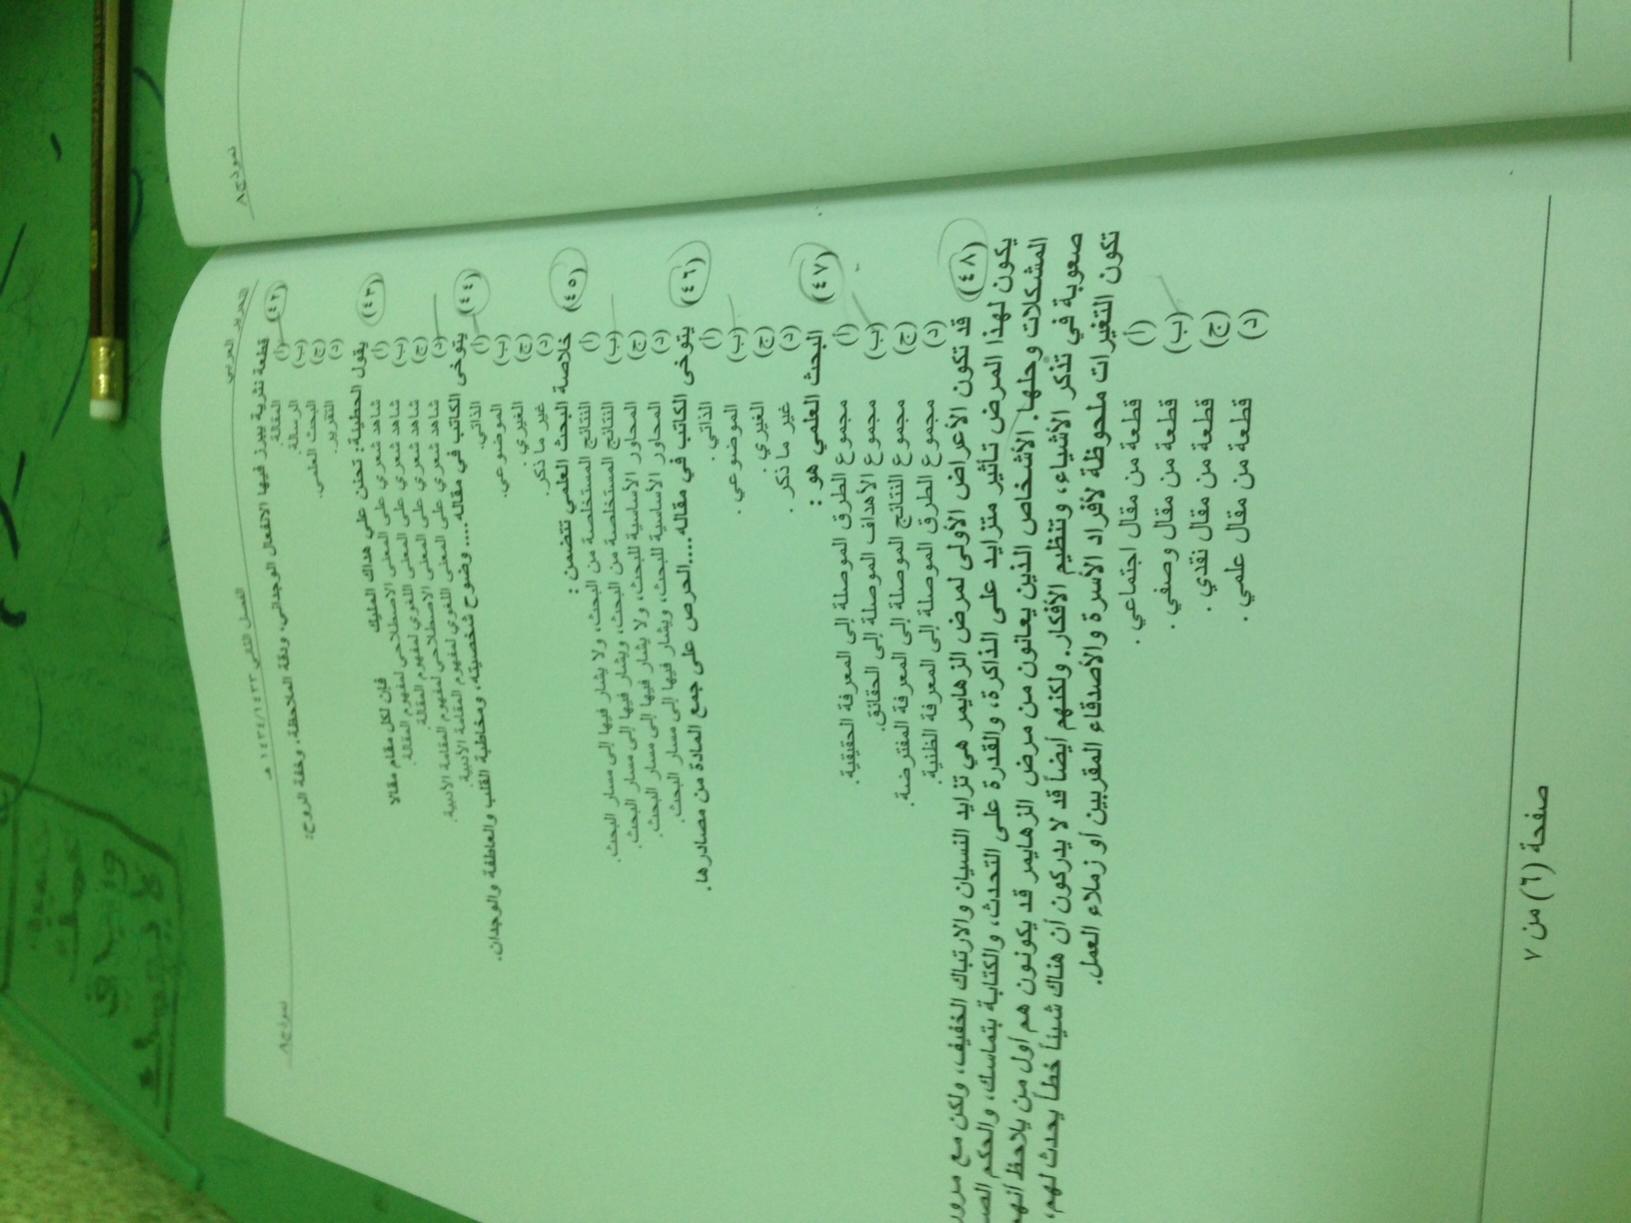 نموذج ٨
التحرير العربي
الفصل الثاني ١٤٣٣/١٤٣٤ هـ
نموذج ٨
(٤٢) قطعة نثرية يبرز فيها الانفعال الوجداني، ودقة الملاحظة، وخفة الروح:
(أ) المقالة.
(ب) الرسالة.
(ج) البحث العلمي.
(د) التقرير.
(٤٣) يقول الحطيئة: تحنن علي هداك المليك فإن لكل مقام مقالا
(أ) شاهد شعري على المعنى الاصطلاحي لمفهوم المقالة.
(ب) شاهد شعري على المعنى اللغوي لمفهوم المقالة.
(ج) شاهد شعري على المعنى الاصطلاحي لمفهوم المقامة الأدبية.
(د) شاهد شعري على المعنى اللغوي لمفهوم المقامة الأدبية.
(٤٤) يتوخى الكاتب في مقاله .... وضوح شخصيته، ومخاطبة القلب والعاطفة والوجدان.
(أ) الذاتي.
(ب) الموضوعي.
(ج) الغيري.
(د) غير ما ذكر.
(٤٥) خلاصة البحث العلمي تتضمن :
(أ) النتائج المستخلصة من البحث، ولا يشار فيها إلى مسار البحث.
(ب) النتائج المستخلصة من البحث، ويشار فيها إلى مسار البحث.
(ج) المحاور الأساسية للبحث، ولا يشار فيها إلى مسار البحث.
(د) المحاور الأساسية للبحث، ويشار فيها إلى مسار البحث.
(٤٦) يتوخى الكاتب في مقاله....الحرص على جمع المادة من مصادرها.
(أ) الذاتي.
(ب) الموضوعي .
(ج) الغيري .
(د) غير ما ذكر .
(٤٧) البحث العلمي هو :
(أ) مجموع الطرق الموصلة إلى المعرفة الحقيقية.
(ب) مجموع الأهداف الموصلة إلى الحقائق.
(ج) مجموع النتائج الموصلة إلى المعرفة المفترضة.
(د) مجموع الطرق الموصلة إلى المعرفة الظنية.
(٤٨) قد تكون الأعراض الأولى لمرض الزهايمر هي تزايد النسيان والارتباك الخفيف، ولكن مع مرور
يكون لهذا المرض تأثير متزايد على الذاكرة، والقدرة على التحدث، والكتابة بتماسك، والحكم
المشكلات وحلها. الأشخاص الذين يعانون من مرض الزهايمر قد يكونون هم أول من يلاحظ أنهم
صعوبة في تذكر الأشياء، وتنظيم الأفكار. ولكنهم أيضاً قد لا يدركون أن هناك شيئاً خطأ يحدث لهم،
تكون التغيرات ملحوظة لأفراد الأسرة والأصدقاء المقربين أو زملاء العمل.
(أ) قطعة من مقال اجتماعي .
(ب) قطعة من مقال وصفي .
(ج) قطعة من مقال نقدي .
(د) قطعة من مقال علمي .
صفحة (٦) من ٧